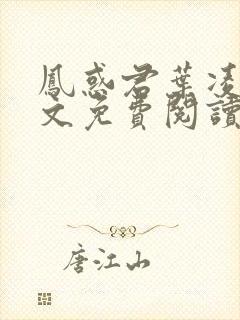 鳳惑君葉凌
文免費閱讀
唐江山